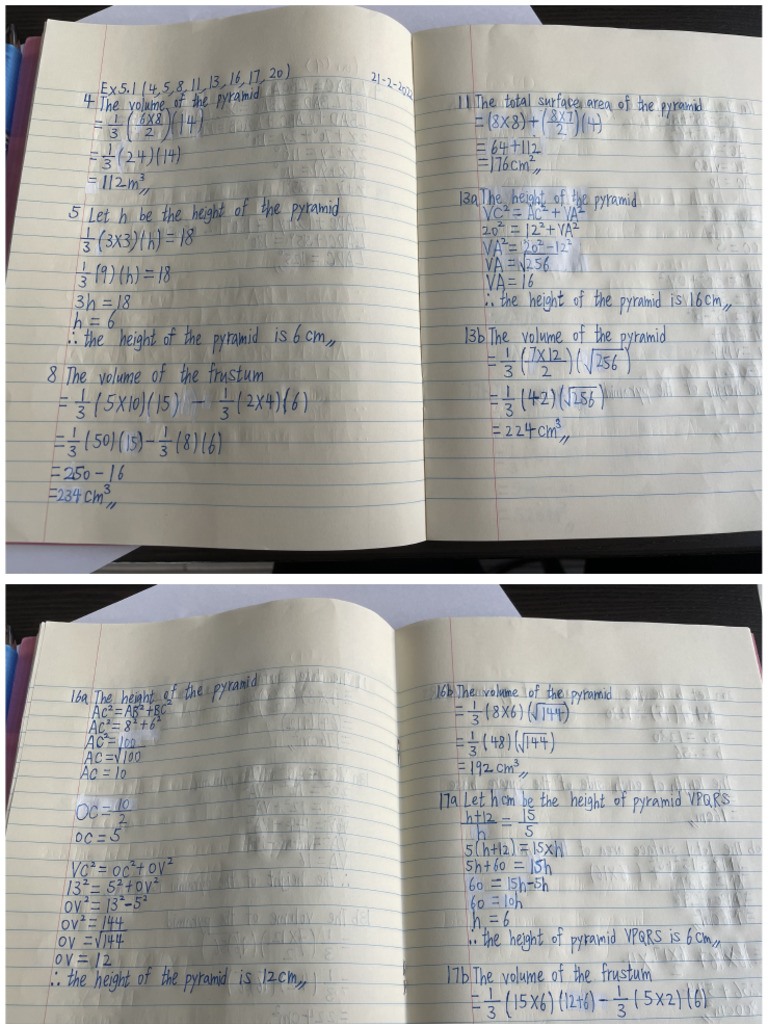 Ex 5.1 (4, 5, 8, 11, 13, 16, 17, 20)
21-2-2022
4 The volume of the pyramid
= 1/3 (6×8/2)(14)
= 1/3 (24)(14)
= 112 m³
5 Let h be the height of the pyramid
1/3 (3×3)(h) = 18
1/3 (9)(h) = 18
3h = 18
h = 6
∴ the height of the pyramid is 6 cm
8 The volume of the frustum
= 1/3 (5×10)(15) - 1/3 (2×4)(6)
= 1/3 (50)(15) - 1/3 (8)(6)
= 250 - 16
= 234 cm³
11 The total surface area of the pyramid
= (8×8) + (8×7/2)(4)
= 64 + 112
= 176 cm²
13a The height of the pyramid
VC² = AC² + VA²
20² = 12² + VA²
VA² = 20² - 12²
VA = √256
VA = 16
∴ the height of the pyramid is 16 cm
13b The volume of the pyramid
= 1/3 (7×12/2)(√256)
= 1/3 (42)(√256)
= 224 cm³
16a The height of the pyramid
AC² = AB² + BC²
AC² = 8² + 6²
AC² = 100
AC = √100
AC = 10
OC = 10/2
OC = 5
VC² = OC² + OV²
13² = 5² + OV²
OV² = 13² - 5²
OV² = 144
OV = √144
OV = 12
∴ the height of the pyramid is 12 cm
16b The volume of the pyramid
= 1/3 (8×6)(√144)
= 1/3 (48)(√144)
= 192 cm³
17a Let h cm be the height of pyramid VPQRS
h+12/h = 15/5
5(h+12) = 15×h
5h+60 = 15h
60 = 15h-5h
60 = 10h
h = 6
∴ the height of pyramid VPQRS is 6 cm
17b The volume of the frustum
= 1/3 (15×6)(12+6) - 1/3 (5×2)(6)